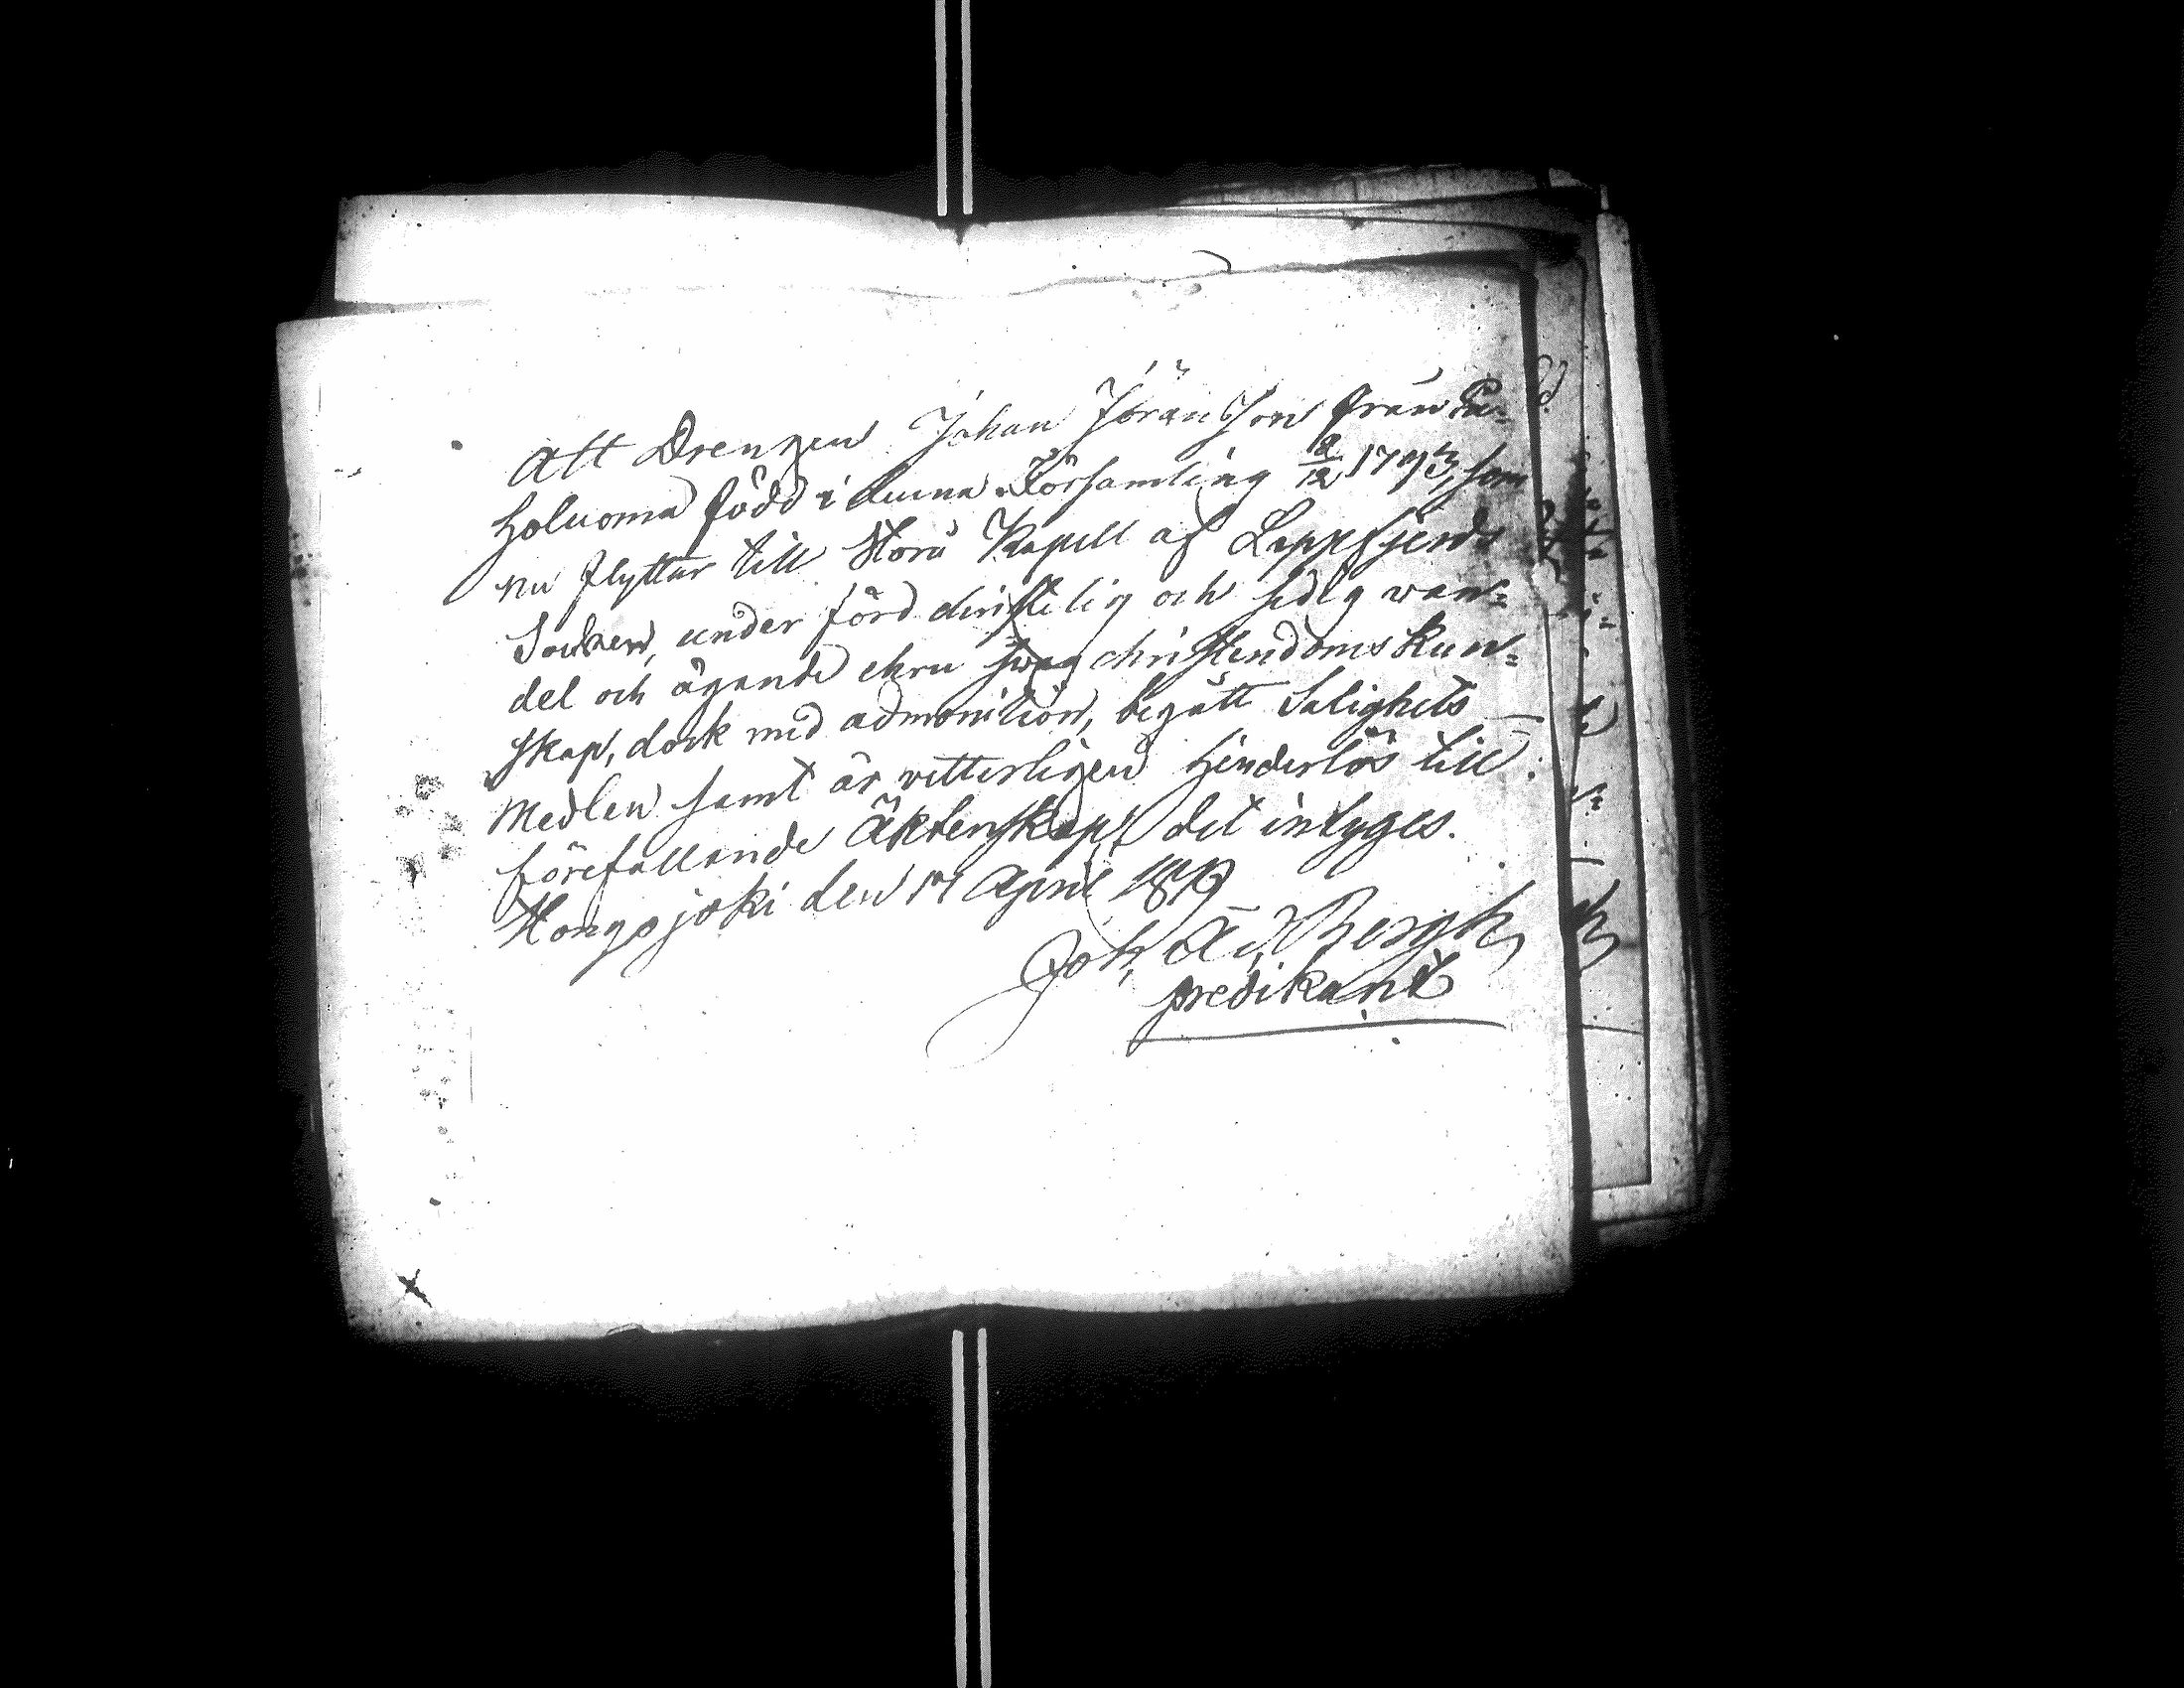 Att Drengen Johan Jöransson från Pa=
holuoma född i denna Församling 18/12 1793, som
nu flyttar till Storå Kapell af Lappfjerds
Socken, under förd christelig och sedig wan=
del och ägande ehru swag christendoms kun=
skap, dock med admonition, begått Salighets
Medlen samt är vetterligen hinderlös till
förefallande Äktenskap; det intyges.
Hongojoki den 14 April 1819
Joh. Ad. Bergh
predikant